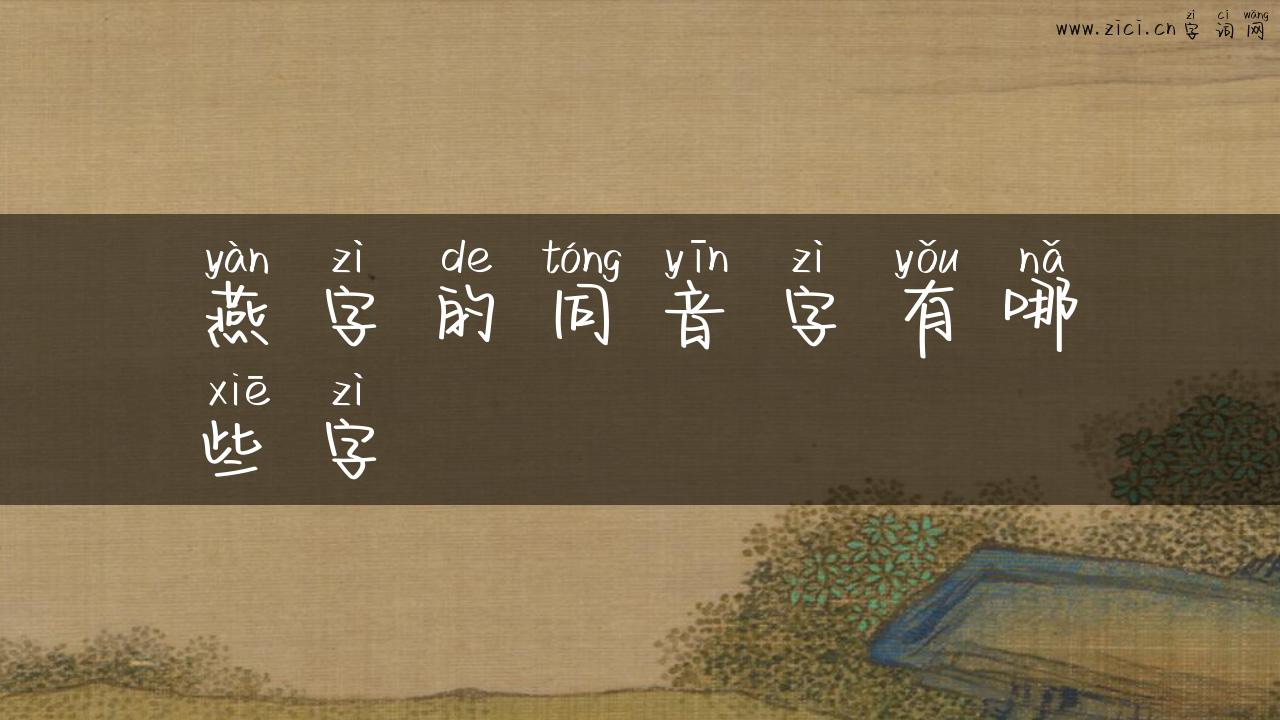 zì cí wǎng
www.zici.cn 字词网
yàn zì de tóng yīn zì yǒu nǎ
燕字的同音字有哪
xiē zì
些字